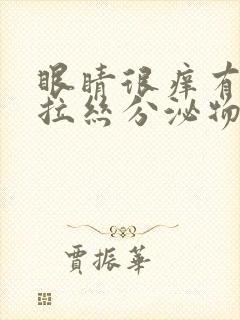 眼睛很痒有
拉丝分泌物
贾振华